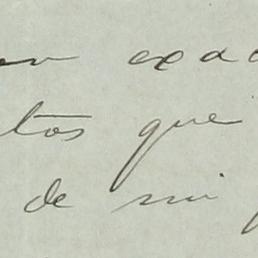 exac
tos que
de mi